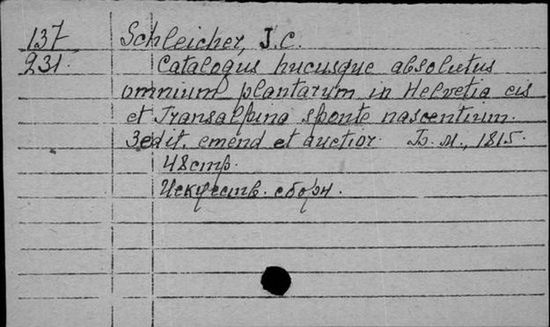 137 Schleicher, J.C.
231. Catalogus hucusque absolutus
omnium plantarum in Helvetia cis
et Transalpina sponte nascentium.
3 edit. emend et auctior. Б. м., 1815.
48 стр.
Искусств. сборн.